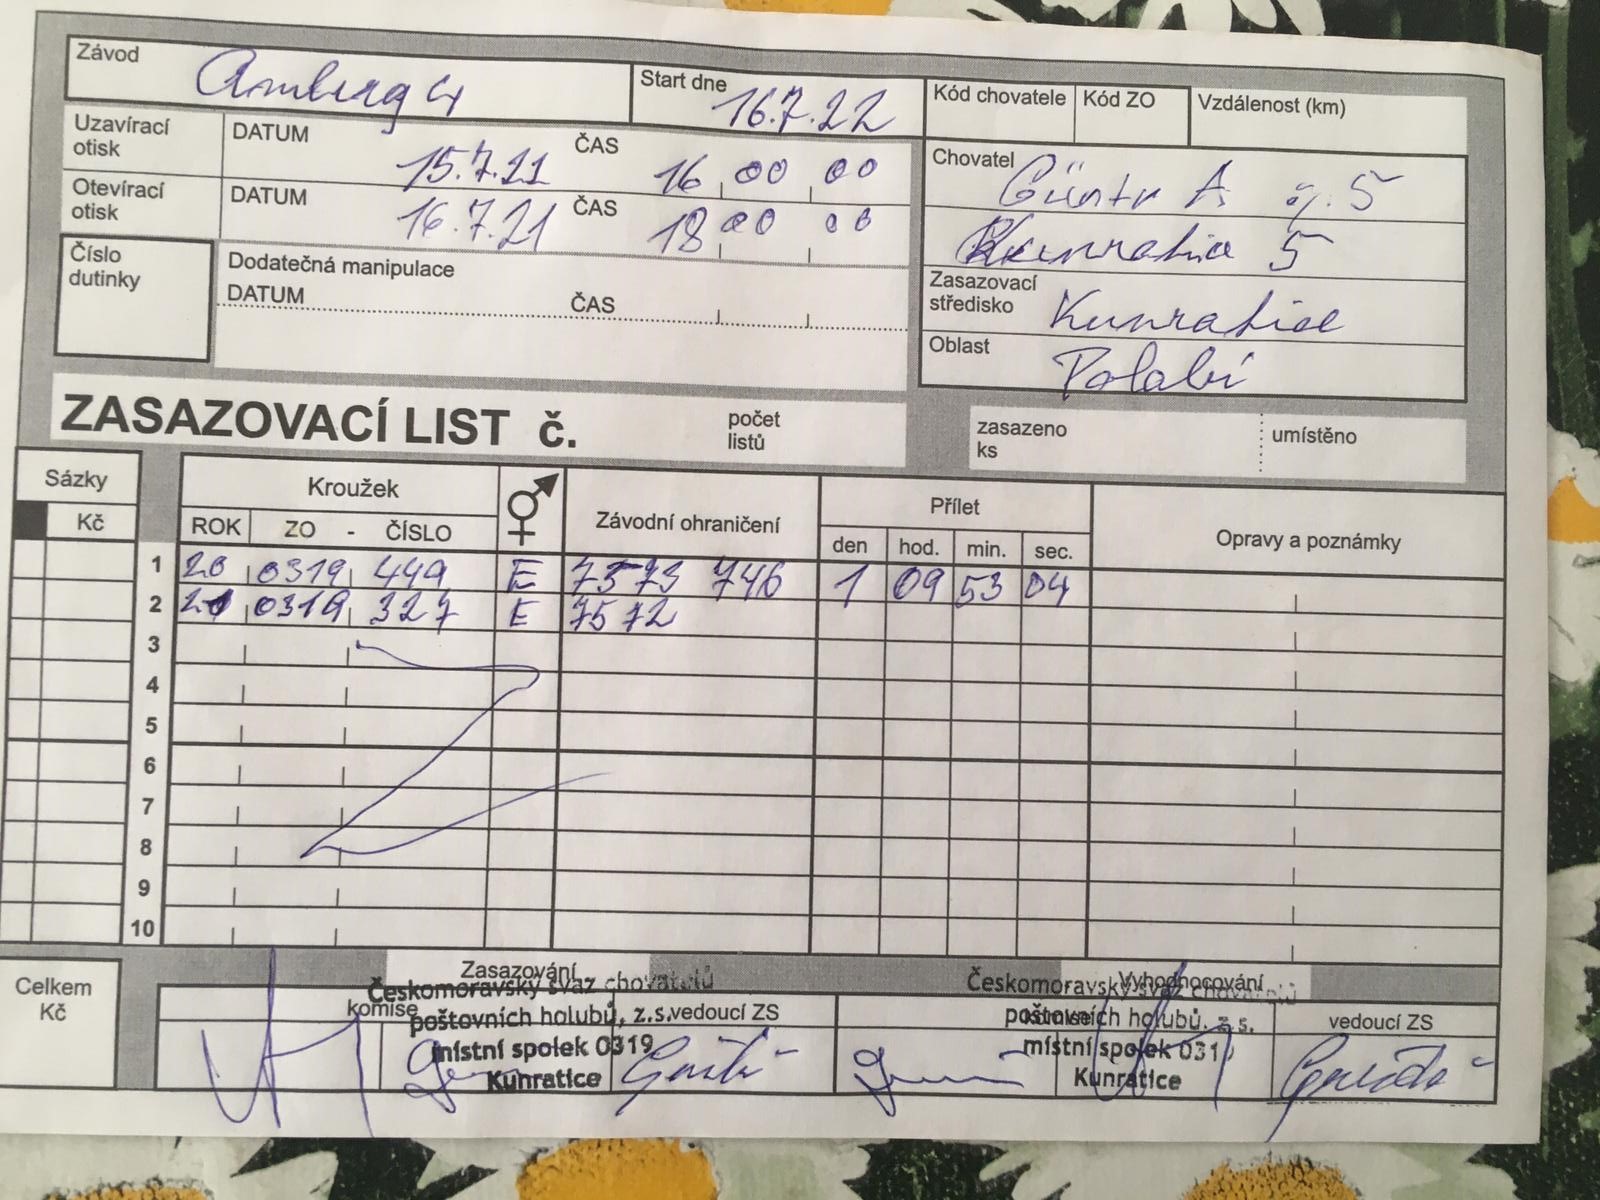 Závod Amberg 4 Start dne 16.7.22 Kód chovatele Kód ZO Vzdálenost (km)
Uzavírací otisk DATUM 15.7.21 ČAS 16 00 00
Otevírací otisk DATUM 16.7.21 ČAS 18 00 00
Chovatel Güntr A
Kunratice 5
Zasazovací středisko Kunratice
Oblast Polabí
Číslo dutinky
Dodatečná manipulace
DATUM ČAS
ZASAZOVACÍ LIST č. počet listů zasazeno ks umístěno
Sázky Kroužek Závodní ohraničení Přílet Opravy a poznámky
Kč ROK ZO - ČÍSLO den hod. min. sec.
1 20 0319 449 E 7573 746 1 09 53 04
2 0319 327 E 7572
3
4
5
6
7
8
9
10
Celkem Kč
Zasazování Vyhodnocování
komise vedoucí ZS komise vedoucí ZS
Českomoravský svaz chovatelů
poštovních holubů, z.s.
místní spolek 0319
Kunratice
Českomoravský svaz chovatelů
poštovních holubů, z.s.
místní spolek 0319
Kunratice